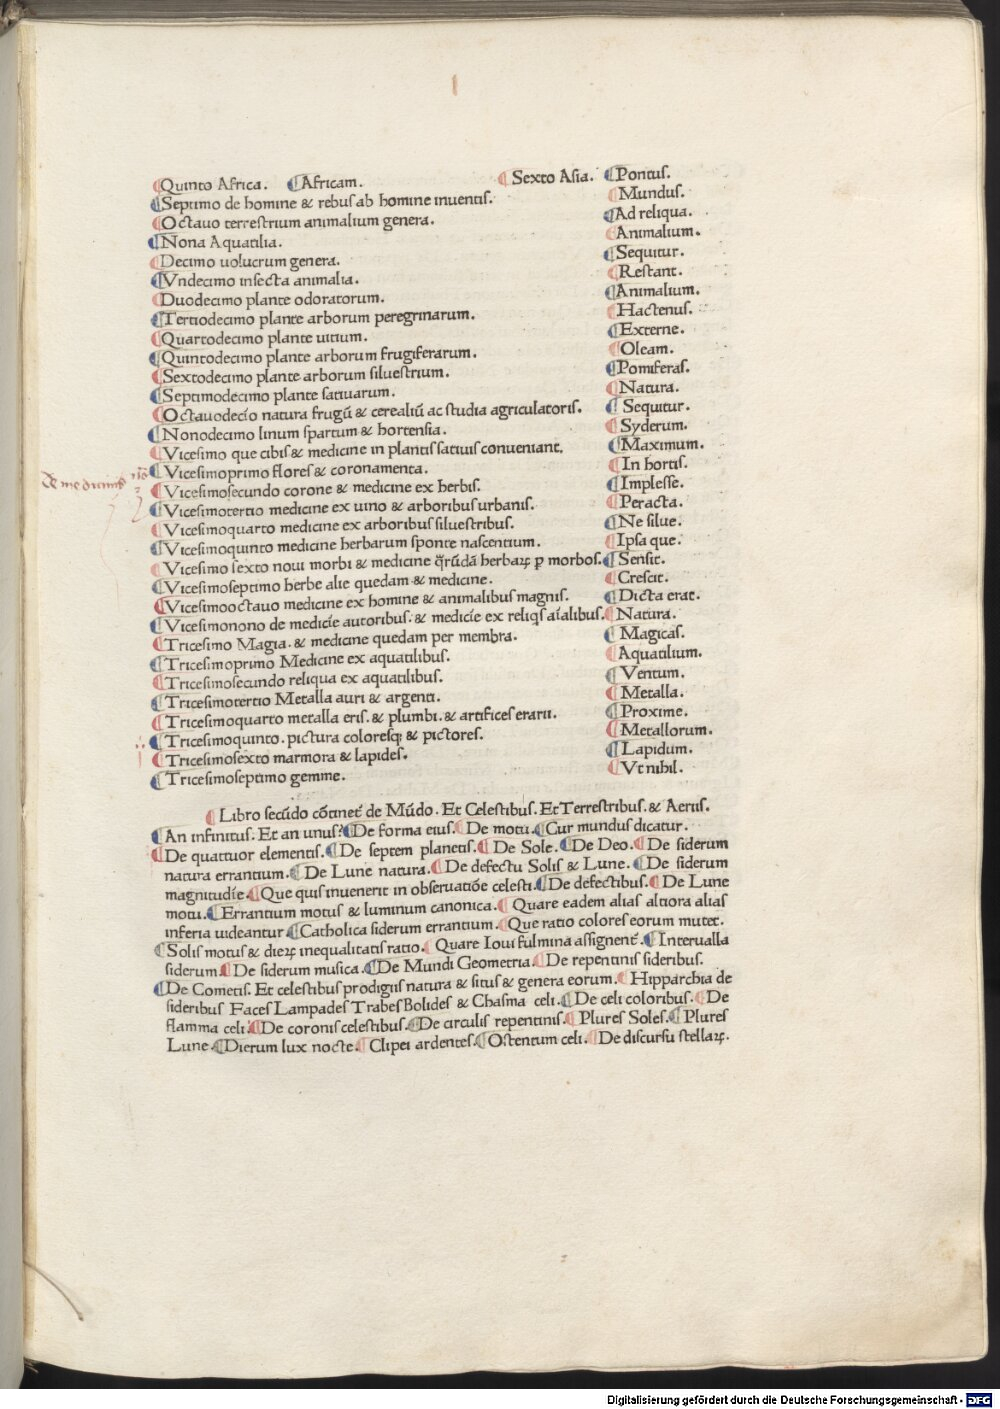 Quinto Africa. Africam. Sexto Asia. Pontus.
Septimo de homine & rebus ab homine inuentis. Mundus.
Octauo terrestrium animalium genera. Ad reliqua.
Nona Aquatilia. Animalium.
Decimo uolucrum genera. Sequitur.
Vndecimo insecta animalia. Restant.
Duodecimo plante odoratorum. Animalium.
Tertiodecimo plante arborum peregrinarum. Hactenus.
Quartodecimo plante uitium. Externe.
Quintodecimo plante arborum frugiferarum. Oleam.
Sextodecimo plante arborum siluestrium. Pomiferas.
Septimodecimo plante satiuarum. Natura.
Octauodecīo natura frugū & cerealiū ac studia agriculatoris. Sequitur.
Nonodecimo linum spartum & hortensia. Syderum.
Vicesimo que cibis & medicine in plantis satiuis conueniant. Maximum.
Vicesimoprimo flores & coronamenta. In hortis.
Vicesimosecundo corone & medicine ex herbis. Implesse.
Vicesimotertio medicine ex uino & arboribus urbanis. Peracta.
Vicesimoquarto medicine ex arboribus siluestribus. Ne silue.
Vicesimoquinto medicine herbarum sponte nascentium. Ipsa que.
Vicesimo sexto noui morbi & medicine q̄rūdā herbaꝝ ꝑ morbos. Sensit.
Vicesimoseptimo herbe alie quedam & medicine. Crescit.
Vicesimooctauo medicine ex homine & animalibus magnis. Dicta erat.
Vicesimonono de medicīe autoribus. & medicīe ex reliqs aīalibus. Natura.
Tricesimo Magia. & medicine quedam per membra. Magicas.
Tricesimoprimo Medicine ex aquatilibus. Aquatilium.
Tricesimosecundo reliqua ex aquatilibus. Ventum.
Tricesimotertio Metalla auri & argenti. Metalla.
Tricesimoquarto metalla eris. & plumbi. & artifices erarii. Proxime.
Tricesimoquinto. pictura coloresq; & pictores. Metallorum.
Tricesimosexto marmora & lapides. Lapidum.
Tricesimoseptimo gemme. Vt nihil.
Libro secūdo cōtinet̄ de Mūdo. Et Celestibus. Et Terrestribus. & Aeriis.
An infinitus. Et an unus? De forma eius. De motu. Cur mundus dicatur.
De quattuor elementis. De septem planetis. De Sole. De Deo. De siderum
natura errantium. De Lune natura. De defectu Solis & Lune. De siderum
magnitudīe. Que quis inuenerit in obseruatiōe celesti. De defectibus. De Lune
motu. Errantium motus & luminum canonica. Quare eadem alias altiora alias
inferia uideantur. Catholica siderum errantium. Que ratio colores eorum mutet.
Solis motus & dierꝝ inequalitatis ratio. Quare Ioui fulmina assignent̄. Interualla
siderum. De siderum musica. De Mundi Geometria. De repentinis sideribus.
De Cometis. Et celestibus prodigiis natura & situs & genera eorum. Hipparchia de
sideribus Faces Lampades Trabes Bolides & Chasma celi. De celi coloribus. De
flamma celi. De coronis celestibus. De circulis repentinis. Plures Soles. Plures
Lune. Dierum lux nocte. Clipei ardentes. Ostentum celi. De discursu stellaꝝ.
Digitalisierung gefördert durch die Deutsche Forschungsgemeinschaft - DFG